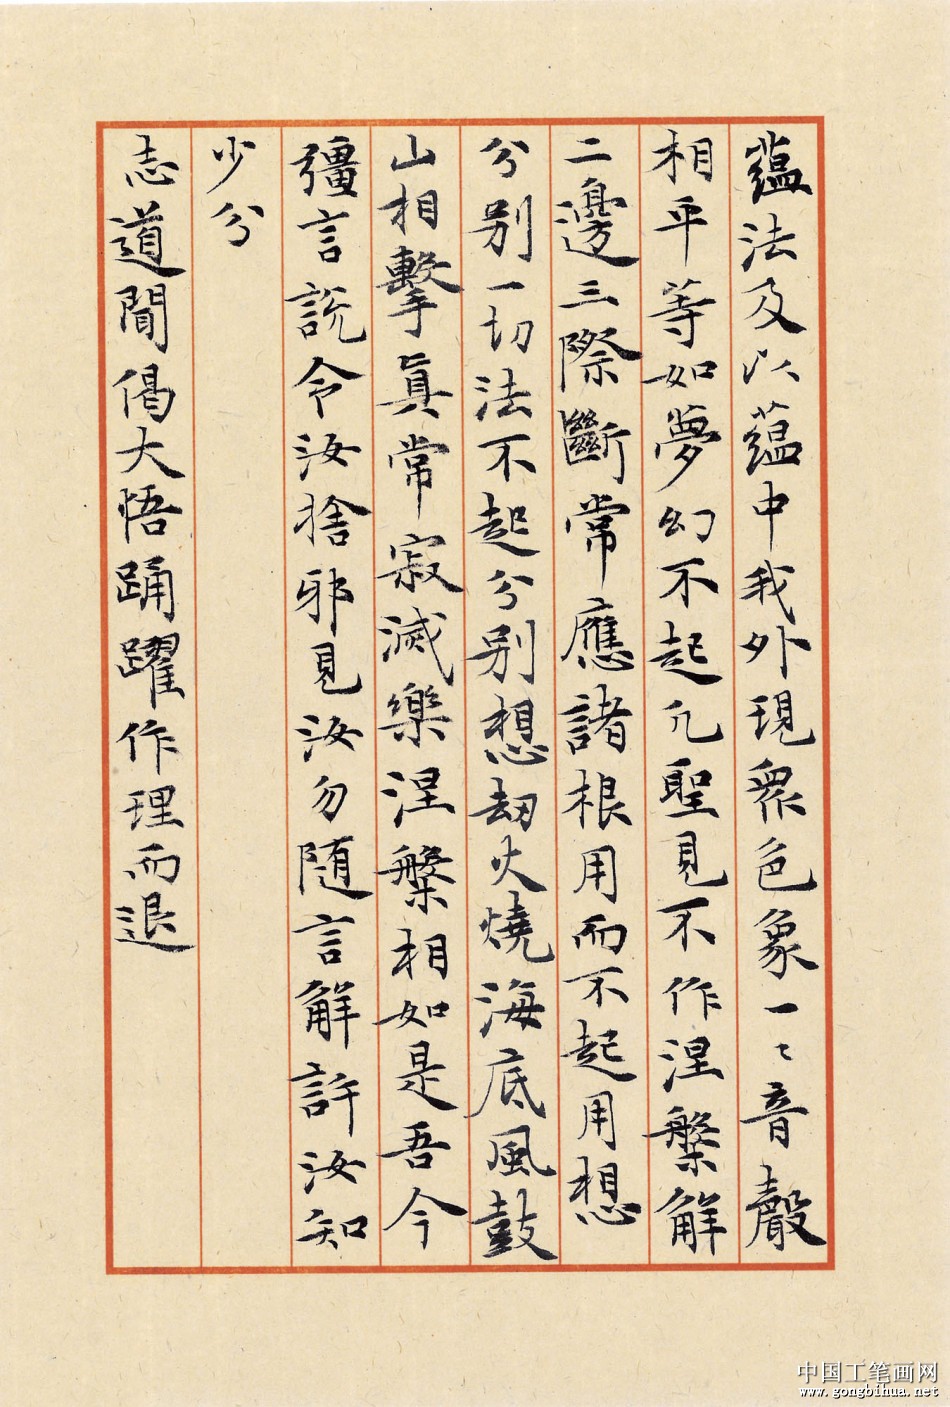 蘊法及以蘊中我外現衆色象一〻音聲
相平等如夢幻不起凡聖見不作涅槃解
二邊三際斷常應諸根用而不起用想
分別一切法不起分別想劫火燒海底風鼓
山相擊真常寂滅樂涅槃相如是吾今
彊言說令汝捨邪見汝勿随言解許汝知
少分
志道聞偈大悟踊躍作理而退
中国工笔画网
www.gongbihua.net